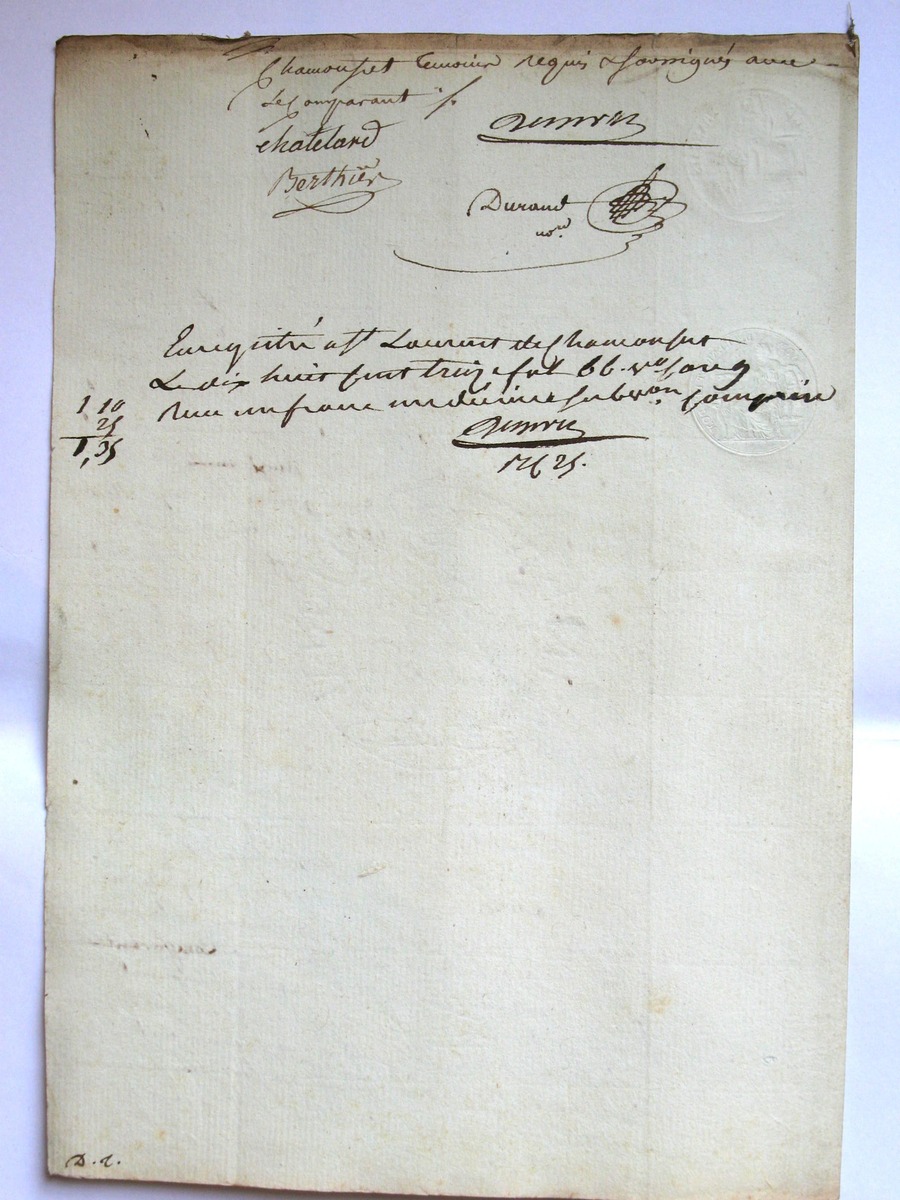 Chamousset temoins requis & soussignés avec
Le Comparant ./.
Chatelard
Berthier
Durand
nore
Enregistré a st Laurent de Chamousset
Le dix huit sept treize fol 66. vo
Reçu un franc un décime subvon comprise
1 10
25
1,35
D. r.